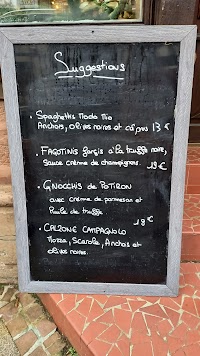 Suggestions
• Spaghettis Modo Mio
Anchois, olives noires et câpres 13 €
• FAGOTINS farçis à la truffe noire,
sauce crème de champignons. 19 €
• GNOCCHIS de POTIRON
avec crème de parmesan et
Huile de truffe
18 €
• CALZONE CAMPAGNOLO
Mozza, Scarole, Anchois et
olives noires.